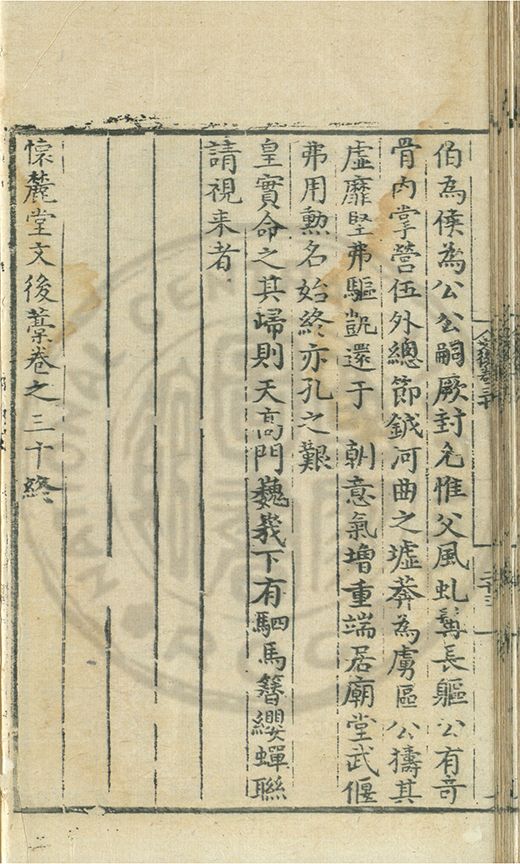 伯為侯為公公嗣厥封允惟父風虬鬚長軀公有竒
骨内掌營伍外總節鉞河曲之墟莽為虜區公擣其
虚靡堅弗驅凱還于 朝意氣增重端居廟堂武偃
弗用勲名始終亦孔之艱
皇實命之其歸則天髙門巍峩下有駟馬簮纓蟬聯
請視来者
懷麓堂文後藁卷之三十終